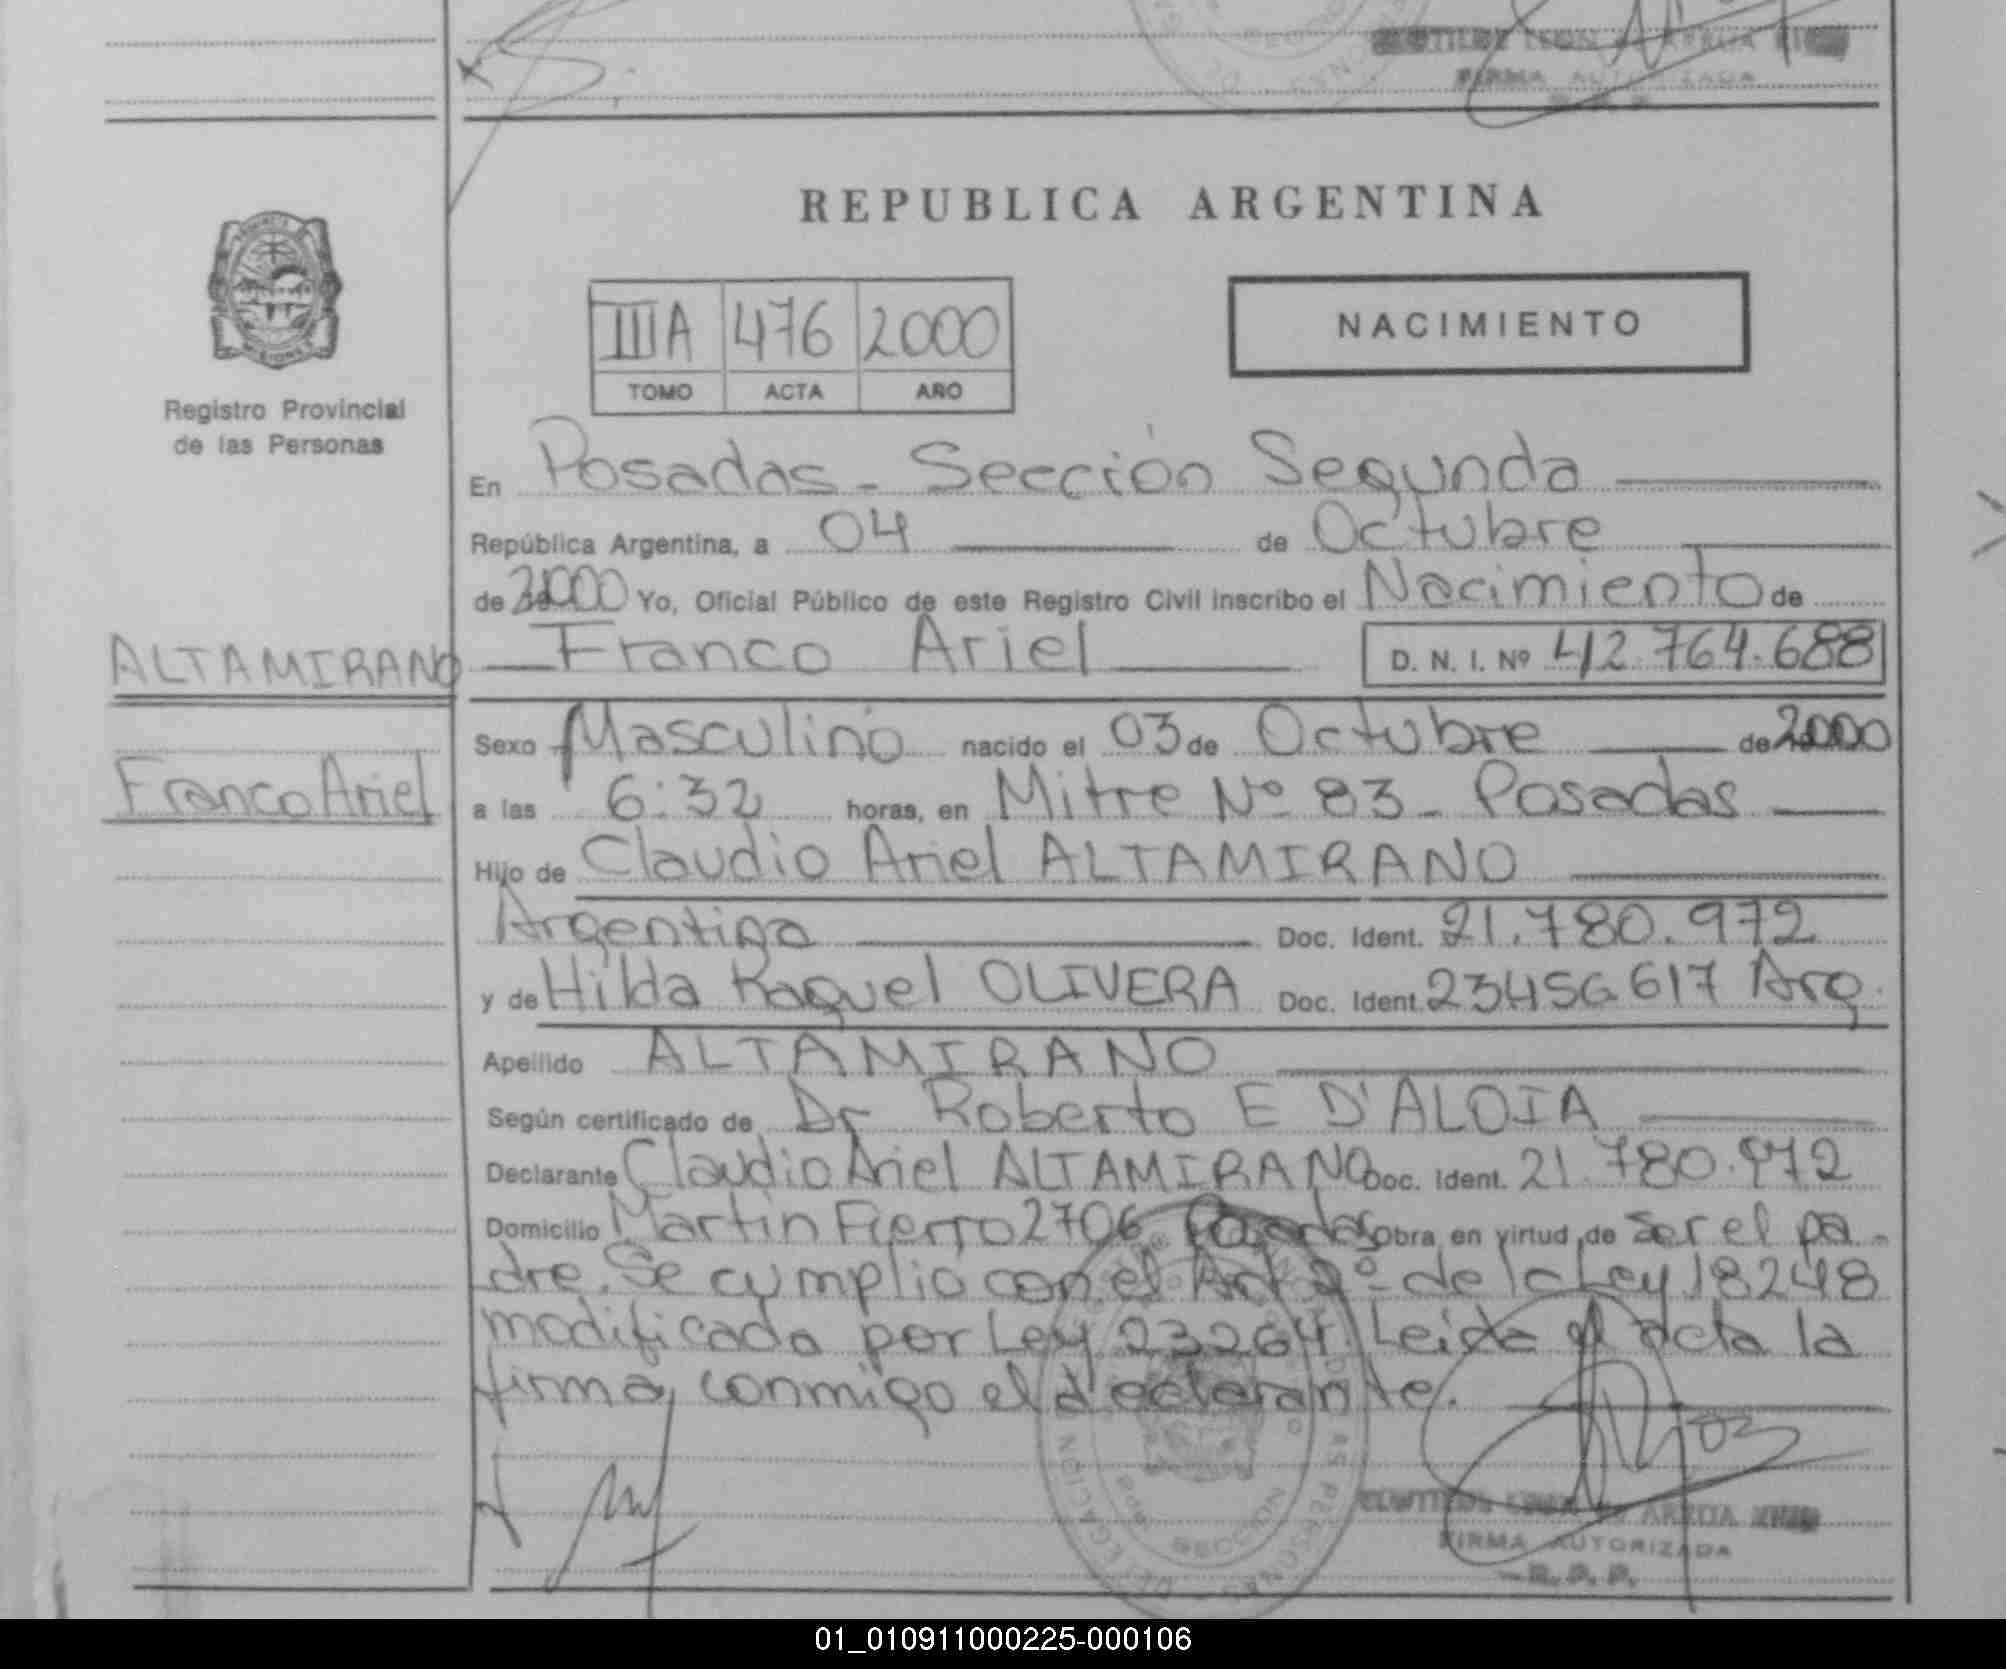 FIRMA AUTORIZADA
REPUBLICA ARGENTINA
IIIA 476 2000
TOMO ACTA AÑO
NACIMIENTO
PROVINCIA DE
MISIONES
Registro Provincial
de las Personas
En Posadas - Sección Segunda
República Argentina, a 04 de Octubre
de 2000 Yo, Oficial Público de este Registro Civil inscribo el Nacimiento de
ALTAMIRANO
Franco Ariel D. N. I. Nº 42.764.688
Sexo Masculino nacido el 03 de Octubre de 2000
Franco Ariel
a las 6:32 horas, en Mitre Nº 83 - Posadas
Hijo de Claudio Ariel ALTAMIRANO
Argentina Doc. Ident. 21.780.972
y de Hilda Raquel OLIVERA Doc. Ident. 23456617 Arg.
Apellido ALTAMIRANO
Según certificado de Dr Roberto E D'ALOIA
Declarante Claudio Ariel ALTAMIRANO Doc. Ident. 21.780.972
Domicilio Martin Fierro 2706 Posadas obra en virtud de ser el pa-
dre. Se cumplió con el Art 2º de la Ley 18248
modificada por Ley 23264. Leida el acta la
firma, conmigo el declarante.
FIRMA AUTORIZADA
R. P. P.
01_010911000225-000106